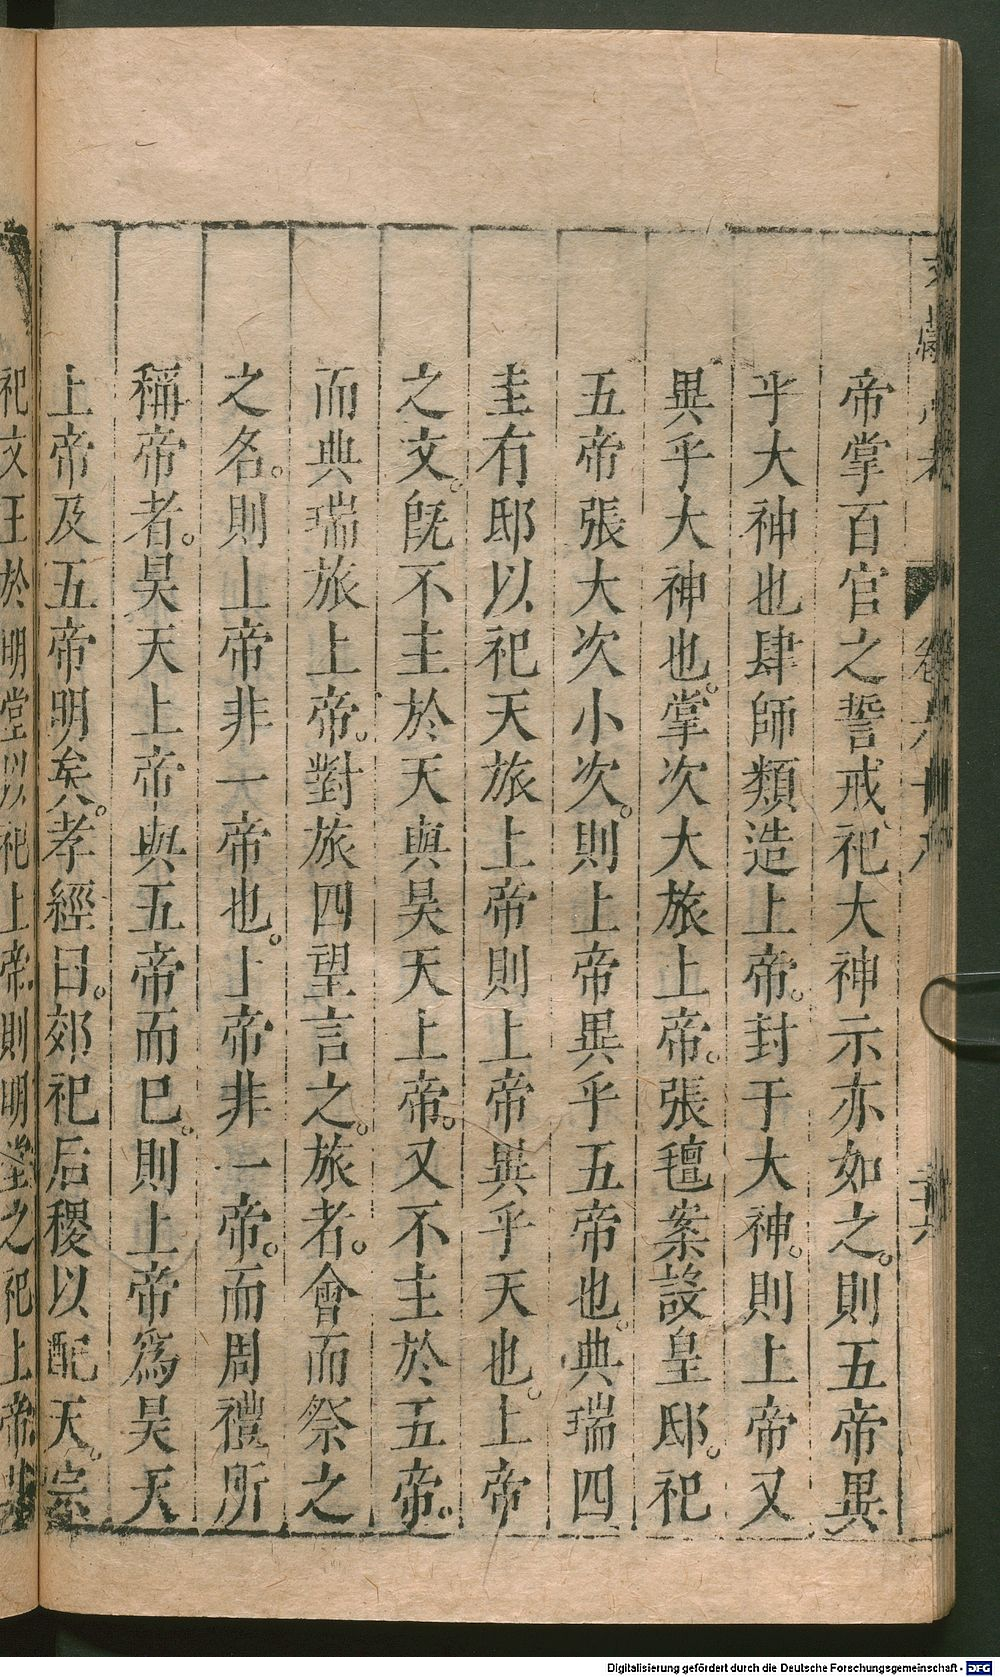 帝掌百官之誓戒祀大神示亦如之。則五帝異
乎大神也肆師類造上帝。封于大神。則上帝又
異乎大神也。掌次大旅上帝。張氊案設皇邸。祀
五帝張大次小次。則上帝異乎五帝也。典瑞四
圭有邸以祀天旅上帝則上帝異乎天也。上帝
之文。既不主於天與昊天上帝。又不主於五帝。
而典瑞旅上帝。對旅四望言之。旅者。會而祭之
之名。則上帝非一帝也。上帝非一帝。而周禮所
稱帝者。昊天上帝與五帝而已。則上帝爲昊天
上帝及五帝明矣。孝經曰。郊祀后稷以配天。宗
祀文王於明堂以祀上帝則明堂之祀上帝
Digitalisierung gefördert durch die Deutsche Forschungsgemeinschaft - DFG